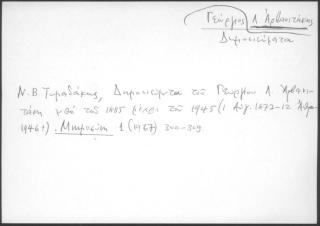 Γεώργιος Λ. Ἀρβανιτάκης
Δημοσιεύματα
Ν. Β. Τωμαδάκης, Δημοσιεύματα τοῦ Γεωργίου Λ. Ἀρβανι-
τάκη ἀπὸ τοῦ 1885 μέχρι τοῦ 1945 (1 Αὐγ. 1872-12 Ἀπρ.
1946†). Μνημοσύνη 1 (1967) 300-309